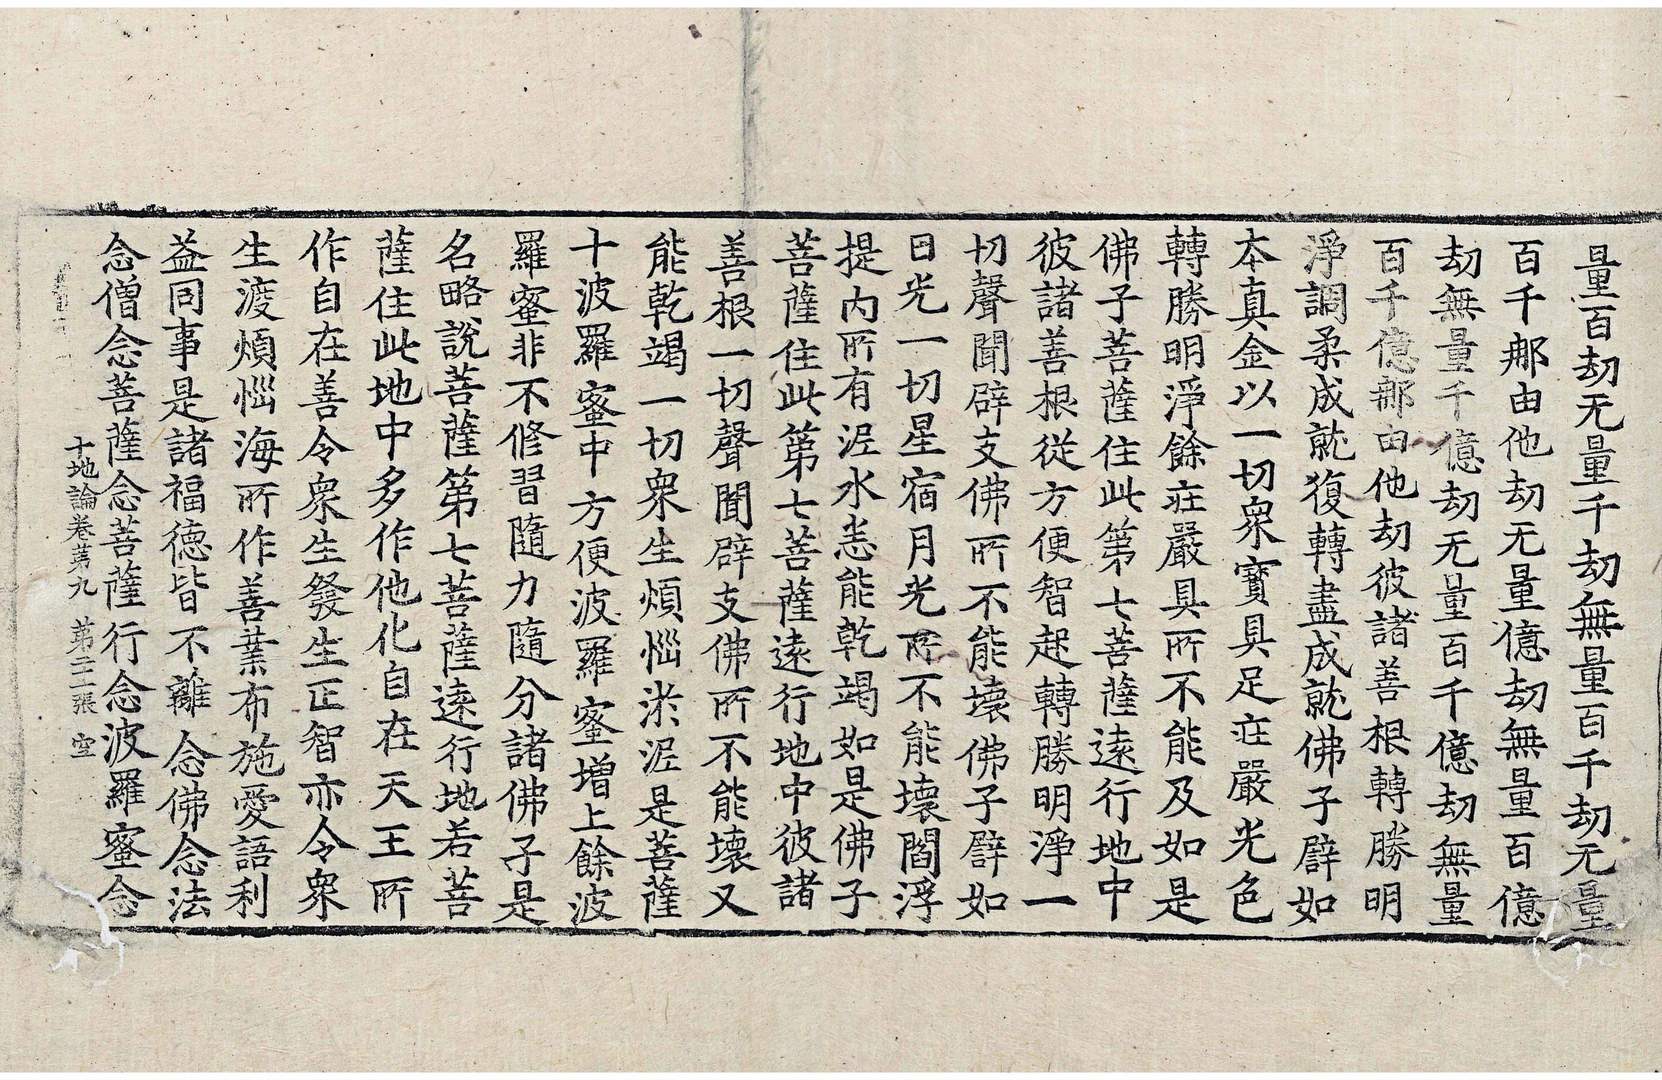 量百劫无量千劫無量百千劫无量
百千那由他劫无量億劫無量百億
劫無量千億劫无量百千億劫無量
百千億那由他劫彼諸善根轉勝明
淨調柔成就復轉盡成就佛子辟如
本真金以一切衆寶具足㽵嚴光色
轉勝明淨餘㽵嚴具所不能及如是
佛子菩薩住此第七菩薩遠行地中
彼諸善根從方便智起轉勝明淨一
切聲聞辟支佛所不能壞佛子辟如
日光一切星宿月光所不能壞閻浮
提内所有泥水悉能乾竭如是佛子
菩薩住此第七菩薩遠行地中彼諸
善根一切聲聞辟支佛所不能壞又
能乾竭一切衆生煩惱淤泥是菩薩
十波羅蜜中方便波羅蜜增上餘波
羅蜜非不修習隨力隨分諸佛子是
名略說菩薩第七菩薩遠行地若菩
薩住此地中多作他化自在天王所
作自在善令衆生發生正智亦令衆
生渡煩惱海所作善業布施愛語利
益同事是諸福德皆不離念佛念法
念僧念菩薩念菩薩行念波羅蜜念
十地論卷第九 第二十二張 空